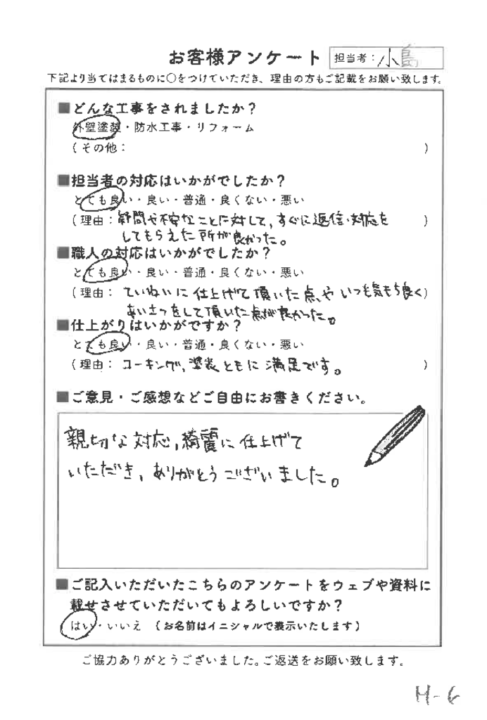 お客様アンケート 担当者: 小島
下記より当てはまるものに○をつけていただき、理由の方もご記載をお願い致します。
■どんな工事をされましたか?
外壁塗装・防水工事・リフォーム
(その他: )
■担当者の対応はいかがでしたか?
とても良い・良い・普通・良くない・悪い
(理由: 疑問や不安なことに対して、すぐに返信・対応を
してもらえた所が良かった。 )
■職人の対応はいかがでしたか?
とても良い・良い・普通・良くない・悪い
(理由: ていねいに仕上げて頂いた点、や いつも気もち良く)
あいさつをして頂いた点が良かった。
■仕上がりはいかがですか?
とても良い・良い・普通・良くない・悪い
(理由: コーキング、塗装ともに満足です。 )
■ご意見・ご感想などご自由にお書きください。
親切な対応、綺麗に仕上げて
いただき、ありがとうございました。
■ご記入いただいたこちらのアンケートをウェブや資料に
載せさせていただいてもよろしいですか?
はい・いいえ (お名前はイニシャルで表示いたします)
ご協力ありがとうございました。ご返送をお願い致します。
H-6